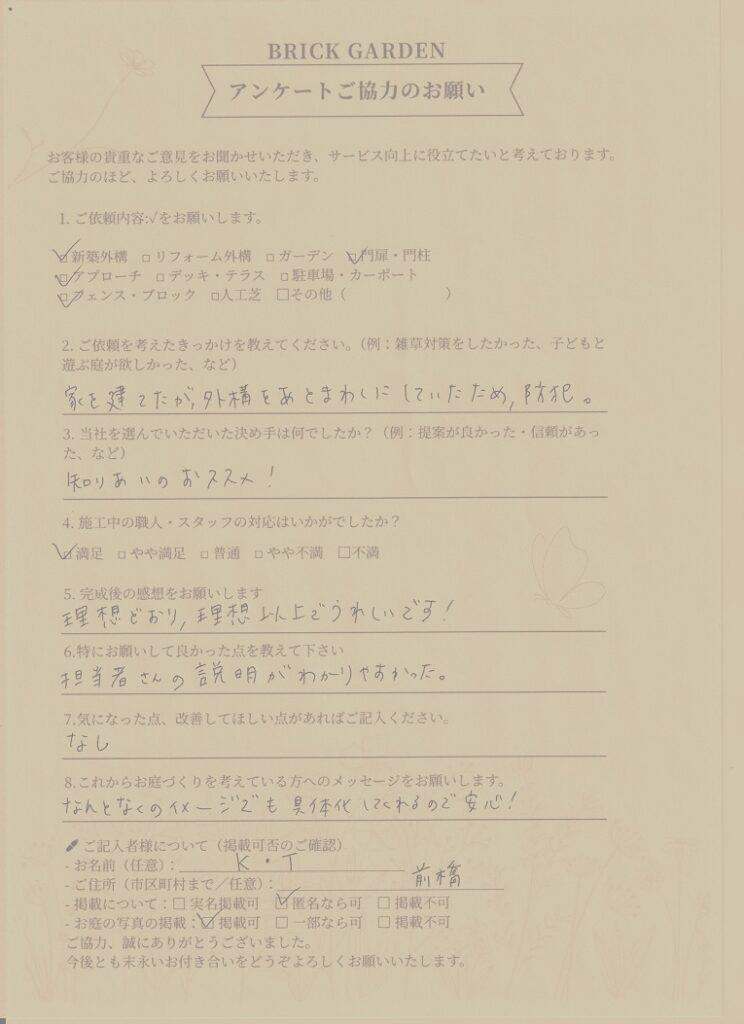 BRICK GARDEN
アンケートご協力のお願い
お客様の貴重なご意見をお聞かせいただき、サービス向上に役立てたいと考えております。
ご協力のほど、よろしくお願いいたします。
1. ご依頼内容:√をお願いします。
☑新築外構 □リフォーム外構 □ガーデン ☑門扉・門柱
☑アプローチ □デッキ・テラス □駐車場・カーポート
☑フェンス・ブロック □人工芝 □その他（　　　　　　　）
2. ご依頼を考えたきっかけを教えてください。（例：雑草対策をしたかった、子どもと
遊ぶ庭が欲しかった、など）
家を建てたが,外構をあとまわしにしていたため,防犯。
3. 当社を選んでいただいた決め手は何でしたか？（例：提案が良かった・信頼があっ
た、など）
知りあいのおススメ!
4. 施工中の職人・スタッフの対応はいかがでしたか？
☑満足 □やや満足 □普通 □やや不満 □不満
5. 完成後の感想をお願いします
理想どおり,理想以上でうれしいです!
6.特にお願いして良かった点を教えて下さい
担当者さんの説明がわかりやすかった。
7.気になった点、改善してほしい点があればご記入ください。
なし
8.これからお庭づくりを考えている方へのメッセージをお願いします。
なんとなくのイメージでも具体化してくれるので安心!
ご記入者様について（掲載可否のご確認）
- お名前（任意）: K・T
- ご住所（市区町村まで／任意）: 前橋
- 掲載について：□実名掲載可 ☑匿名なら可 □掲載不可
- お庭の写真の掲載：☑掲載可 □一部なら可 □掲載不可
ご協力、誠にありがとうございました。
今後とも末永いお付き合いをどうぞよろしくお願いいたします。